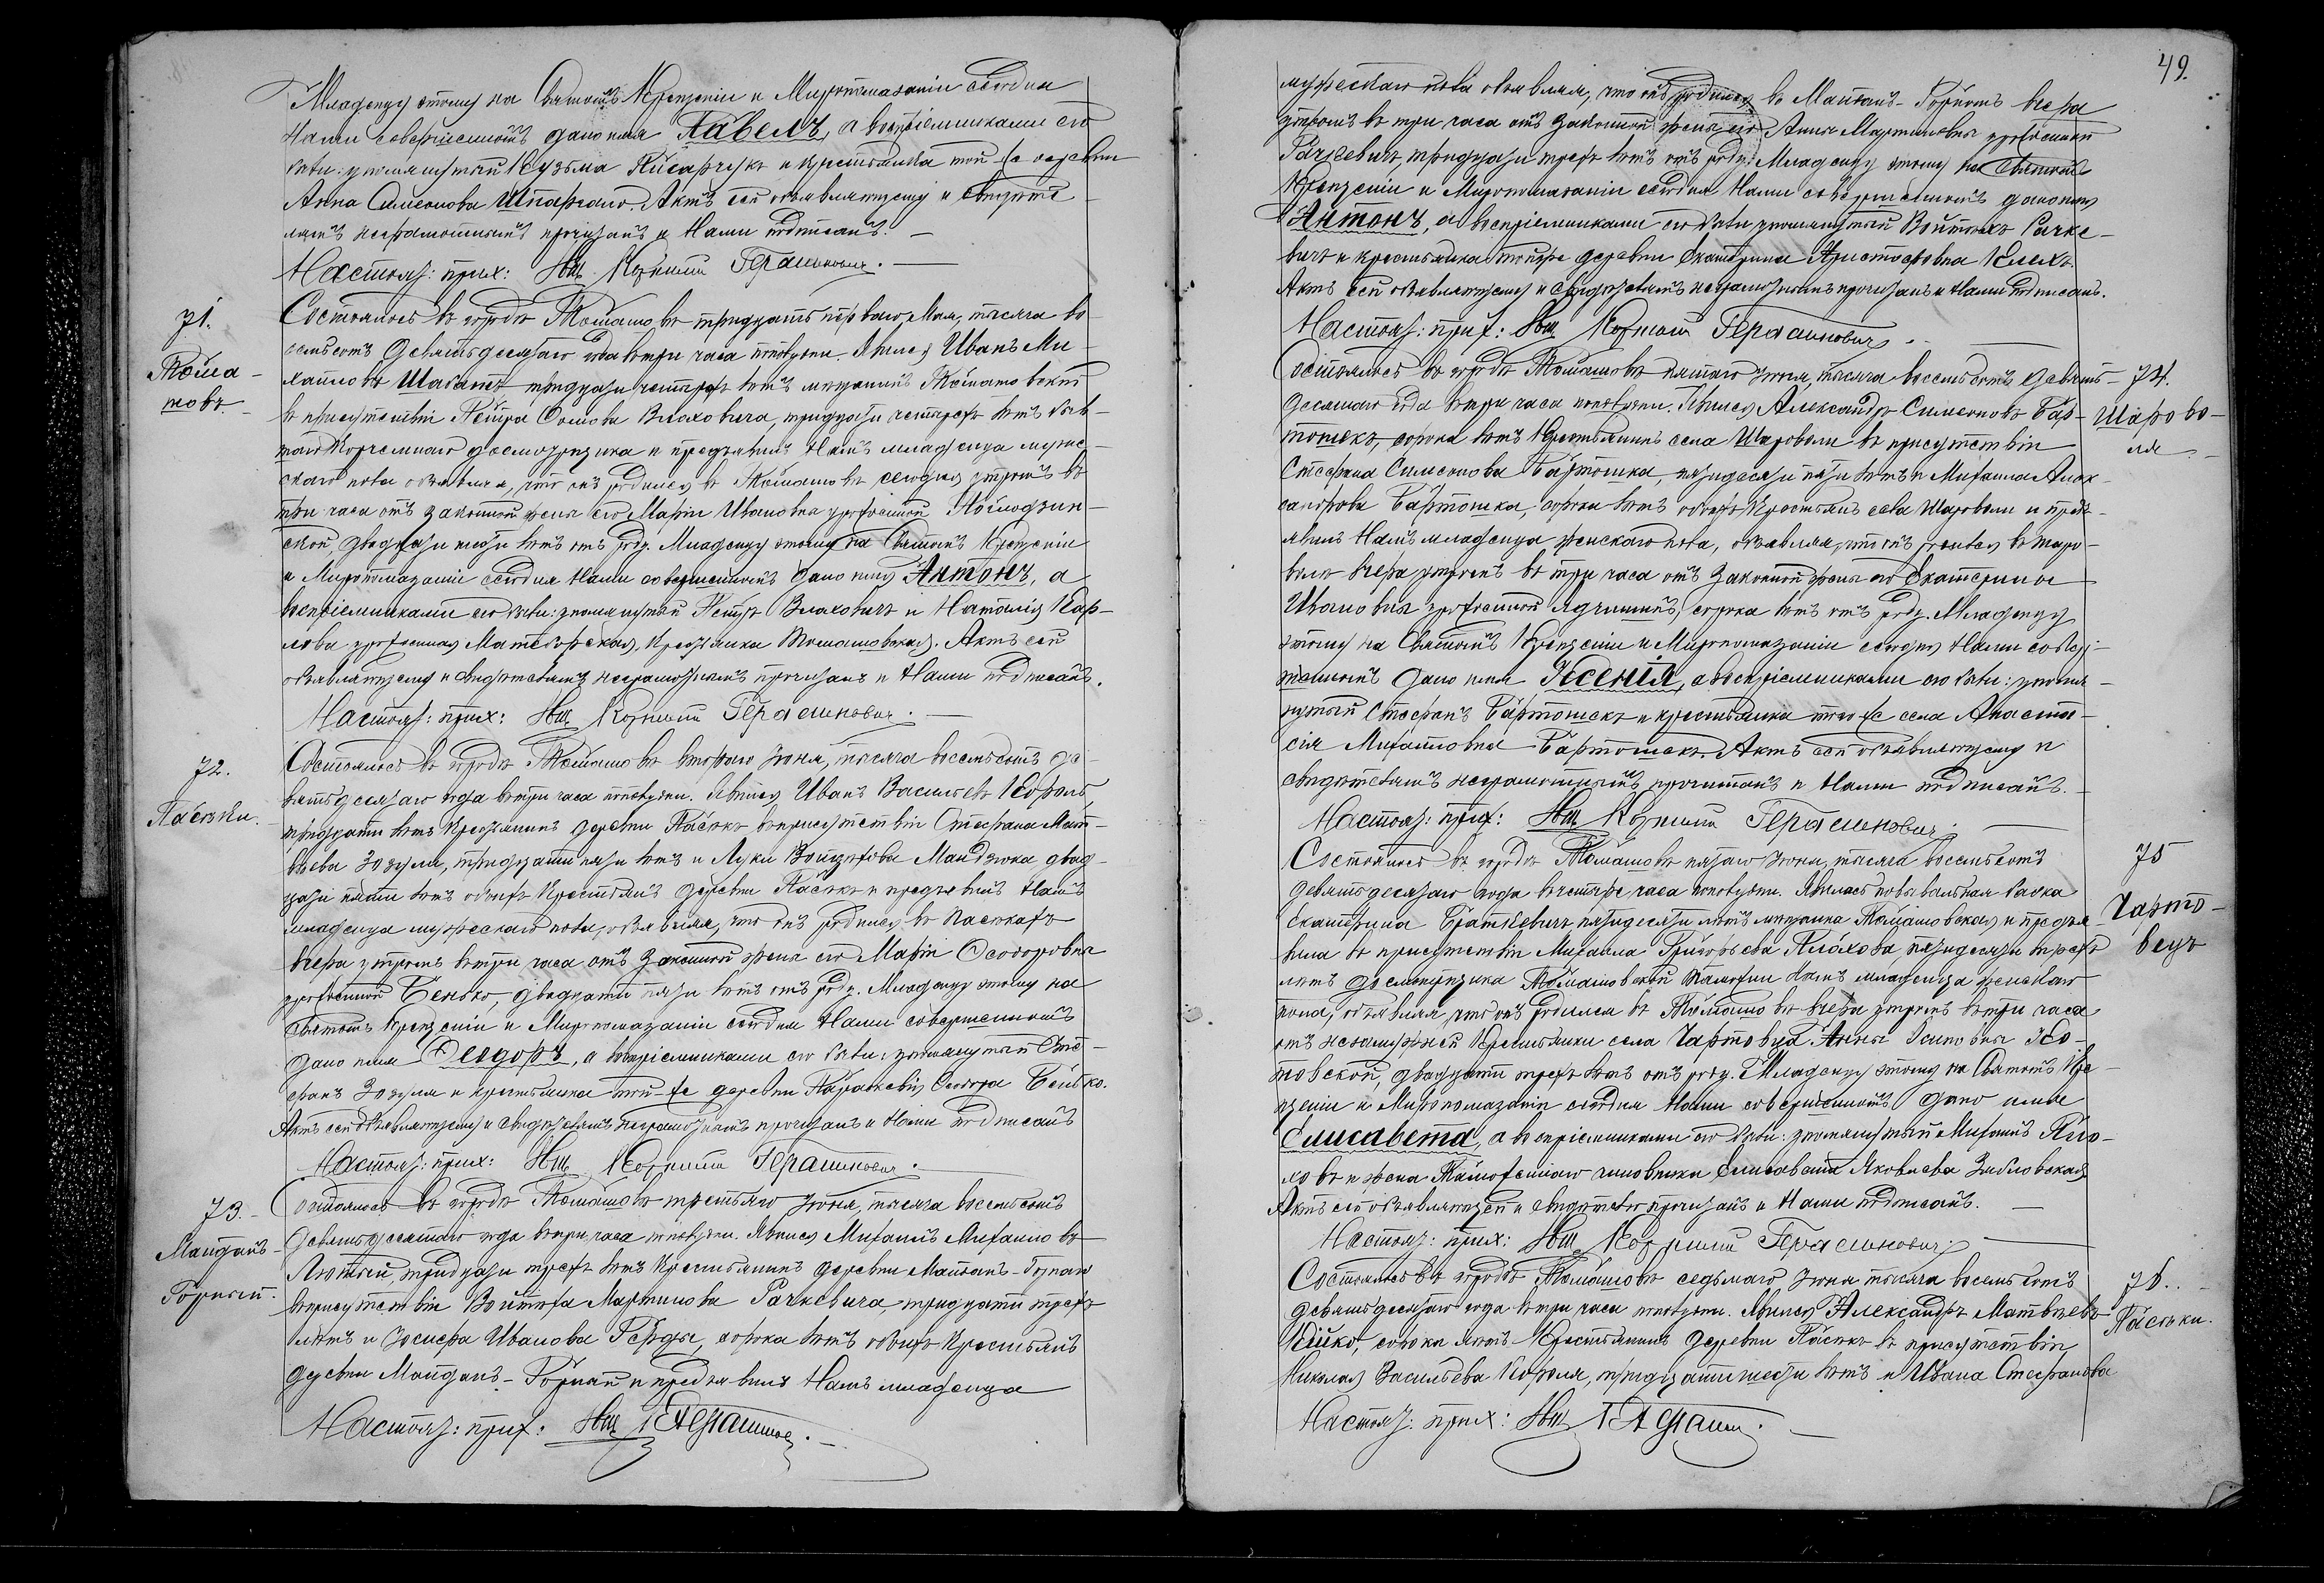 Младенцу этому на Святомъ Крещеніи и Миропомазаніи сегодня
Нами совершенномъ дано имя Павелъ, а воспріемниками его
были: упомянутый Кузьма Писарчукъ и крестьянка той же деревни
Анна Симеонова Шпаргало. Актъ сей объявляющему и свидѣте-
лямъ неграмотнымъ прочитанъ и Нами подписанъ.
Настоят: прих: Свщ. Корнилій Герасимовичъ.
71.
Тома-
шовъ.
Состоялось въ городѣ Томашовѣ тридцать перваго Мая, тысяча во-
семьсотъ девятьдесятаго года въ три часа пополудни. Явился Иванъ Ми-
хайловъ Шабанъ тридцати четырехъ лѣтъ мѣщанинъ Томашовскій
въ присутствіи Петра Осипова Влаховича, тридцати четырехъ лѣтъ быв-
шаго Корчемнаго досмотрщика и предъявилъ Намъ младенца муже-
скаго пола объявляя, что онъ родился въ Томашовѣ сегодня утромъ въ
три часа отъ законной жены его Маріи Ивановны урожденной
ской, двадцати шести лѣтъ отъ роду. Младенцу этому на Святомъ Крещеніи
и Миропомазаніи сегодня Нами совершенномъ дано имя Антонъ, а
воспріемниками его были: упомянутый Петръ Влаховичъ и Наталія Кар-
лова урожденная крестьянка Томашовская. Актъ сей
объявляющему и свидѣтелямъ неграмотнымъ прочитанъ и Нами подписанъ.
Настоят: прих: Свщ. Корнилій Герасимовичъ.
72.
Пасѣки.
Состоялось въ городѣ Томашовѣ втораго Іюня, тысяча восемьсотъ де-
вятьдесятаго года въ три часа пополудни. Явился Иванъ Васильевъ Король,
тридцати лѣтъ крестьянинъ деревни Пасѣкъ въ присутствіи Стефана Мат-
вѣева Зозуля, тридцати пяти лѣтъ и Луки Войцѣхова Мандзюка двад-
цати пяти лѣтъ обоихъ крестьянъ деревни Пасѣкъ и предъявилъ Намъ
младенца мужескаго пола, объявляя, что онъ родился въ Пасѣкахъ
вчера утромъ въ три часа отъ законной жены его Маріи Ѳеодоровны
урожденной Бенько, двадцати пяти лѣтъ отъ роду. Младенцу этому на
Святомъ Крещеніи и Миропомазаніи сегодня Нами совершенномъ
дано имя Ѳеодоръ, а воспріемниками его были: упомянутый Сте-
фанъ Зозуля и крестьянка той-же деревни Параскевія Бенько.
Актъ сей объявляющему и свидѣтелямъ неграмотнымъ прочитанъ и Нами подписанъ
Настоят: прих: Свщ. Корнилій Герасимовичъ.
73.
Майданъ-
Горный.
Состоялось въ городѣ Томашовѣ третьяго Іюня, тысяча восемьсотъ
девятьдесятаго года въ три часа пополудни. Явился Михаилъ Михайловъ
Лютый, тридцати трехъ лѣтъ крестьянинъ деревни Майданъ-Горнаго
въ присутствіи Войтѣха Мартинова Рачкевича тридцати трехъ
лѣтъ и Іосифа Иванова Герды, сорока лѣтъ обоихъ крестьянъ
деревни Майданъ-Горный и предъявилъ Намъ младенца
Настоят: прих: Свщ. К Герасимов.
49.
мужескаго пола объявляя, что онъ родился въ Майданѣ-Горномъ вчера
утромъ въ три часа отъ законной жены его Анны Мартиновны урожденной
Рачкевичъ, тридцати трехъ лѣтъ отъ роду. Младенцу этому на Святомъ
Крещеніи и Миропомазаніи сегодня Нами совершенномъ дано имя
Антонъ, а воспріемниками его были упомянутый Войтѣхъ Рачке-
вичъ и крестьянка той-же деревни Екатерина Христофовна Клехъ.
Актъ сей объявляющему и свидѣтелямъ неграмотнымъ прочитанъ и Нами подписанъ.
Настоят: прих: Свщ. Корнилій Герасимовичъ.
74.
Шарово-
ля.
Состоялось въ городѣ Томашовѣ пятаго Іюня, тысяча восемьсотъ девять-
десятаго года въ три часа пополудни. Явился Александръ Симеоновъ Бар-
тошекъ, сорока лѣтъ крестьянинъ села Шароволи въ присутствіи
Стефана Симеонова Бартошка, пятидесяти пяти лѣтъ и Михаила Алек-
сандрова Бартошка, сорока лѣтъ обоихъ крестьянъ села Шароволи и предъ-
явилъ Намъ младенца женскаго пола, объявляя, что онъ родился въ Шаро-
волѣ вчера утромъ въ три часа отъ законной жены его Екатерины
Ивановны урожденной Ядчишинъ, сорока лѣтъ отъ роду. Младенцу
этому на Святомъ Крещеніи и Миропомазаніи сегодня Нами совер-
шенномъ дано имя Ксенія, а воспріемниками его были: упомя-
нутый Стефанъ Бартошекъ и крестьянка того же села Анаста-
сія Михайловна Бартошекъ. Актъ сей объявляющему и
свидѣтелямъ неграмотнымъ прочитанъ и Нами подписанъ.
Настоят: прих: Свщ. Корнилій Герасимовичъ.
75
Чарто-
вецъ
Состоялось въ городѣ Томашовѣ пятаго Іюня, тысяча восемьсотъ
девятьдесятаго года въ четыре часа пополудни. Явилась повивальная бабка
Екатерина Браткевичъ пятидесяти лѣтъ мѣщанка Томашовская и предъя-
вила въ присутствіи Михаила Григорьева Плохова, пятидесяти трехъ
лѣтъ досмотрщика Томашовской Таможни Намъ младенца женскаго
пола, объявляя, что онъ родился въ Томашовѣ вчера утромъ въ три часа
отъ незамужней крестьянки села Чартовца Анны Осиповны Ко-
товской, двадцати трехъ лѣтъ отъ роду. Младенцу этому на Святомъ Кре-
щеніи и Миропомазаніи сегодня Нами совершенномъ дано имя
Елисавета, а воспріемниками его были: упомянутый Михаилъ Пло-
ховъ и жена Таможеннаго чиновника Елисавета Яковлева
Актъ сей объявляющей и свидѣтелю прочитанъ и Нами подписанъ.
Настоят: прих: Свщ. Корнилій Герасимовичъ.
76.
Пасѣки.
Состоялось въ городѣ Томашовѣ седьмаго Іюня тысяча восемьсотъ
девятьдесятаго года въ три часа пополудни. Явился Александръ Матвѣевъ
Кійко, сорока лѣтъ крестьянинъ деревни Пасѣкъ въ присутствіи
Николая Васильева Короля, тридцати шести лѣтъ и Ивана Стефанова
Настоят: прих: Свщ. К Герасим.